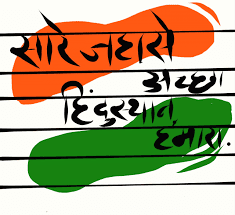 सारे जहासे
अच्छा
हिंदुस्थान
हमारा.